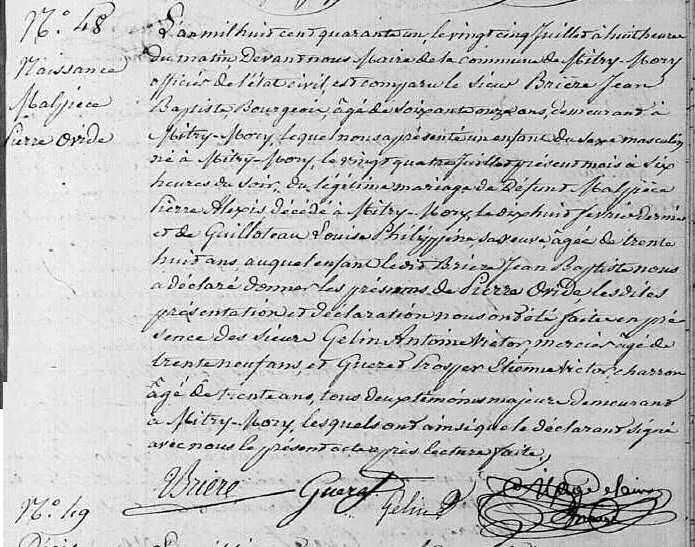 N.° 48
Naissance
Malpièce
Pierre Ovide
L'an mil huit cent quarante un, le vingt cinq Juillet à huit heures
du matin Devant nous Maire de la commune de Mitry-Mory
officier de l'état civil, est comparu le sieur Brière Jean
Baptiste Bourgeois, âgé de soixante onze ans, demeurant à
Mitry-Mory, lequel nous a présenté un enfant du sexe masculin
né à Mitry-Mory, le vingt quatre Juillet présent mois à six
heures du soir, du légitime mariage de Défunt Malpièce
Pierre Alexis décédé à Mitry-Mory, le dix huit février dernier
et de Guilloteau Louise Philippine sa veuve âgée de trente
huit ans auquel enfant ledit Brière Jean Baptiste nous
a déclaré donner les prénoms de Pierre Ovide, les dites
présentation et déclaration nous ont été faite en pré
sence des sieurs Gelin Antoine Victor, mercier âgé de
trente neuf ans, et Gueret Prosper Etienne Victor, charron
âgé de trente ans, tous deux témoins majeurs demeurant
à Mitry-Mory, lesquels ont ainsi que le déclarant signé
avec nous le présent acte après lecture faite,
Brière Gueret Gelin
N.° 49